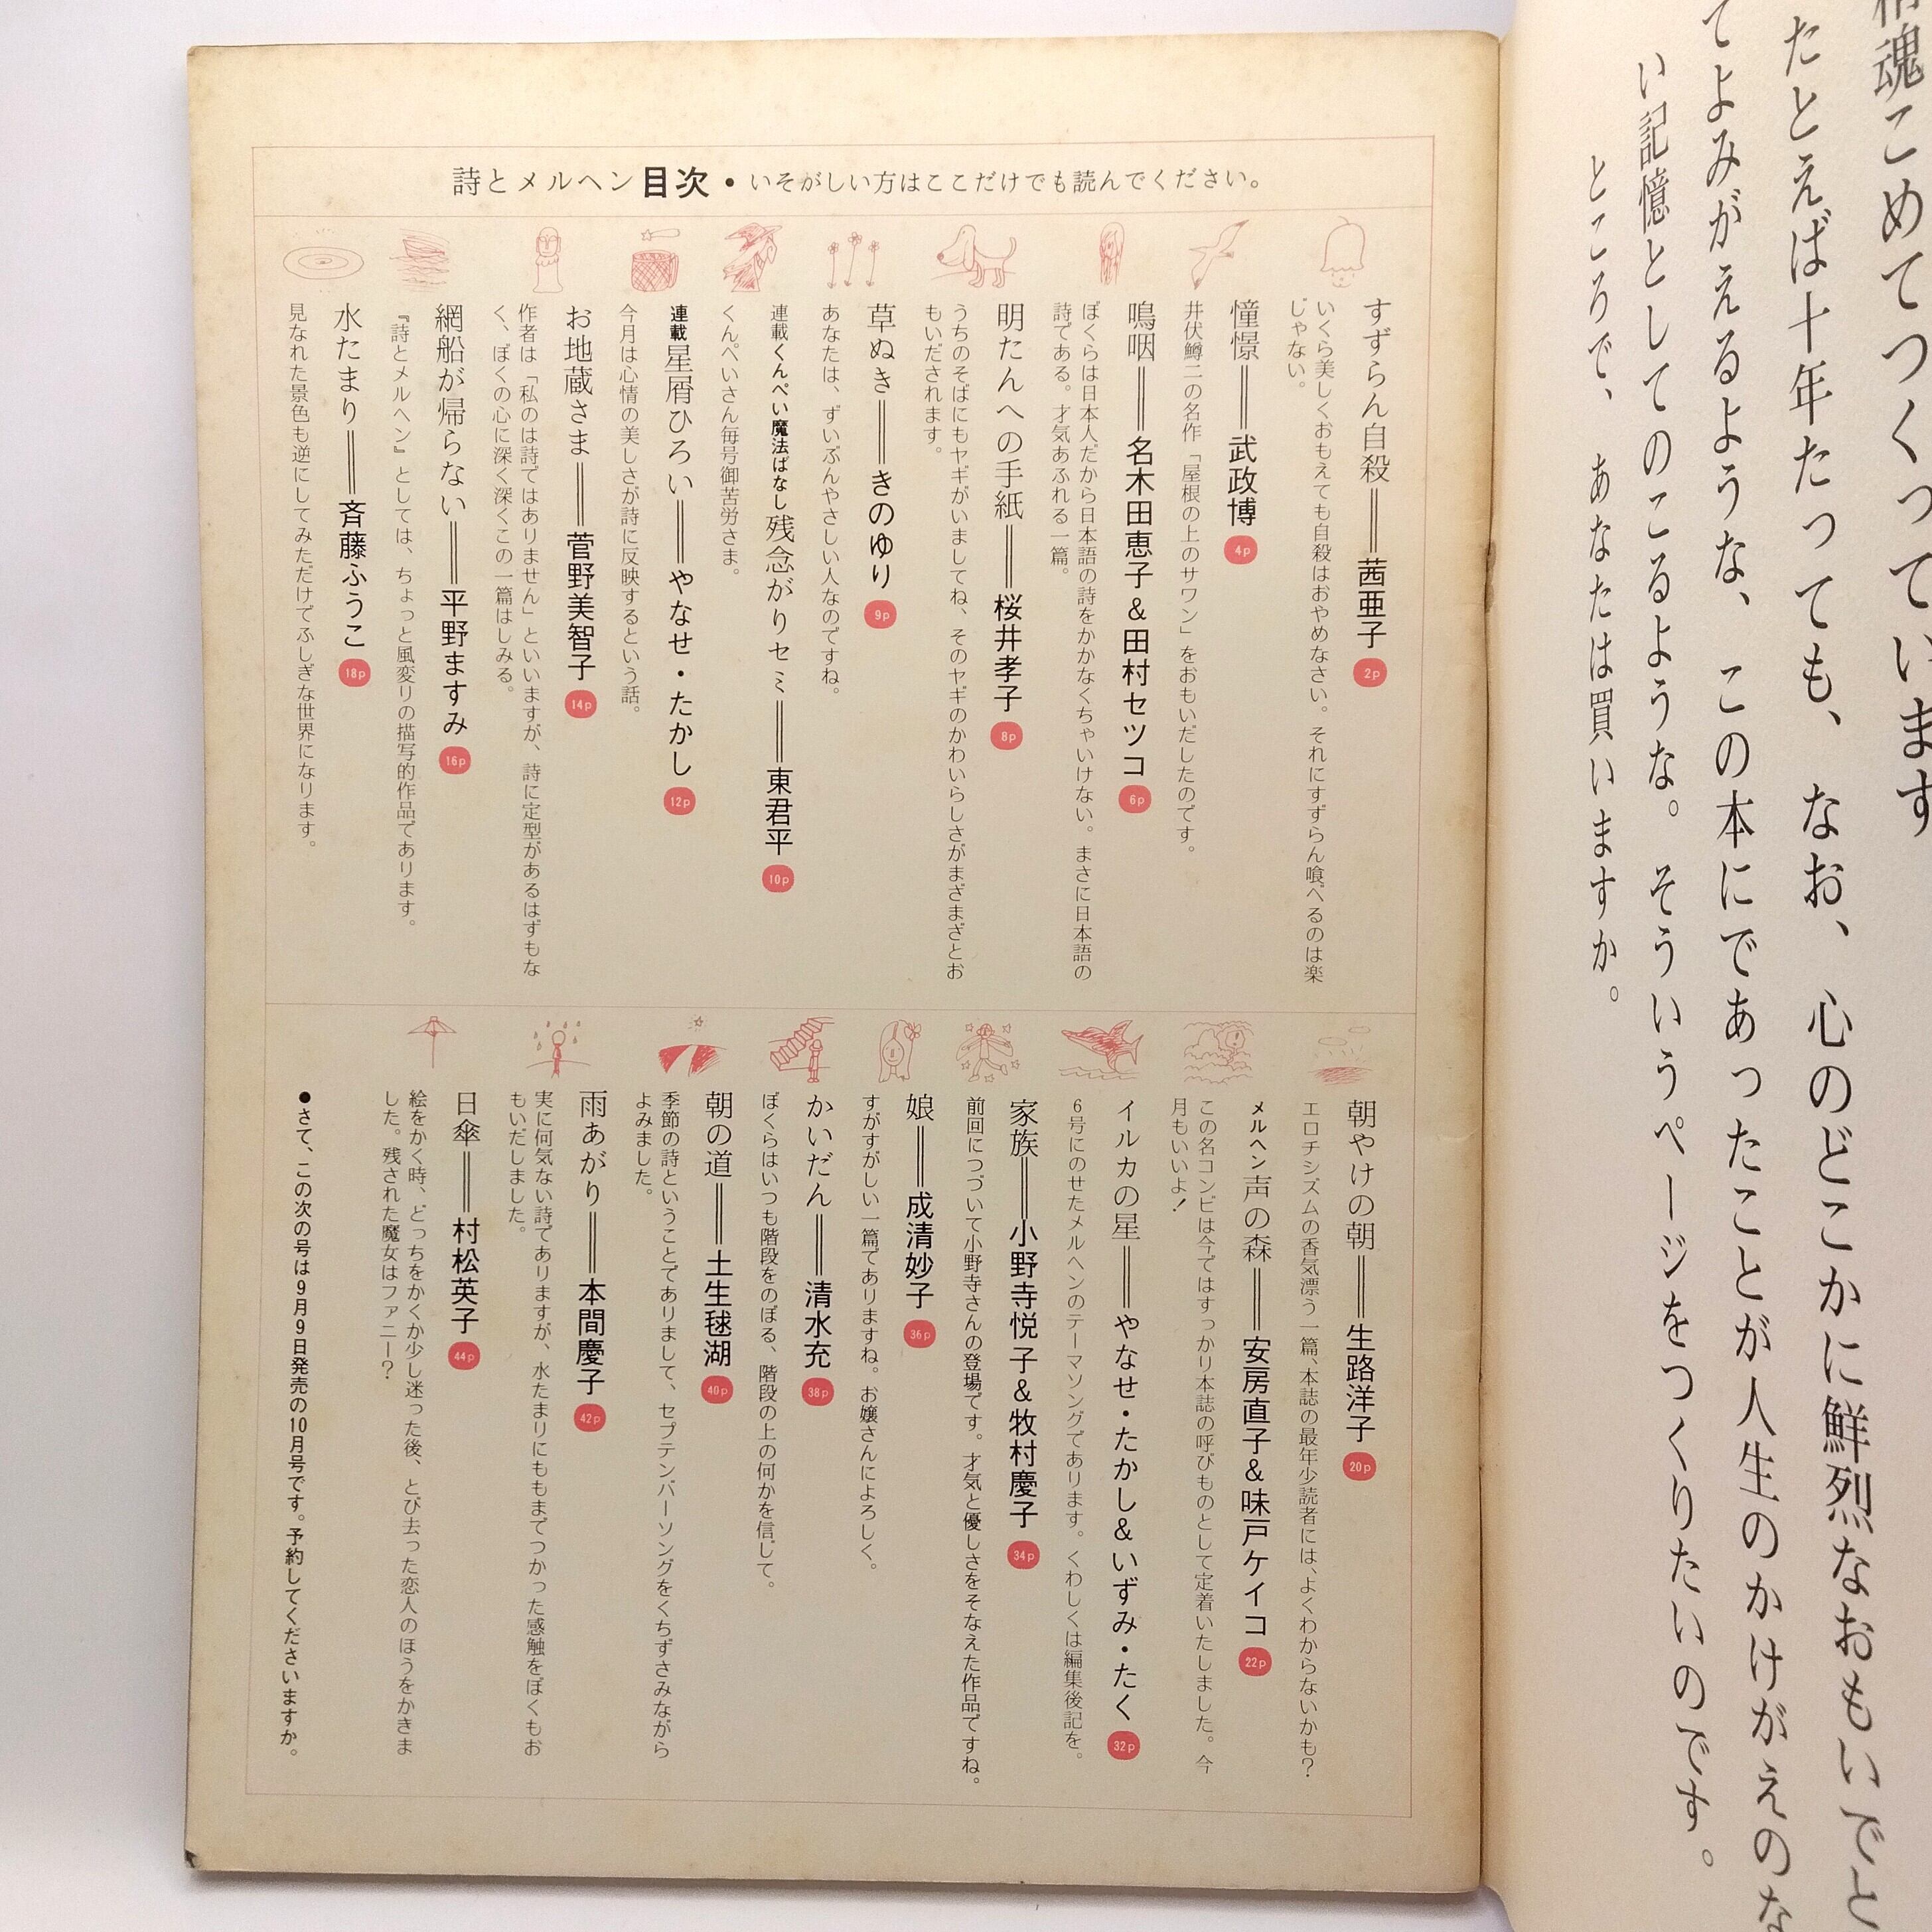 精魂こめてつくっています
たとえば十年たっても、なお、心のどこかに鮮烈なおもいでと
てよみがえるような、この本にであったことが人生のかけがえのな
い記憶としてのこるような。そういうページをつくりたいのです。
ところで、あなたは買いますか。
詩とメルヘン目次・いそがしい方はここだけでも読んでください。
すずらん自殺══茜亜子 2p
いくら美しくおもえても自殺はおやめなさい。それにすずらん喰べるのは楽
じゃない。
憧憬══武政博 4p
井伏鱒二の名作「屋根の上のサワン」をおもいだしたのです。
鳴咽══名木田恵子&田村セツコ 6p
ぼくらは日本人だから日本語の詩をかかなくちゃいけない。まさに日本語の
詩である。才気あふれる一篇。
明たんへの手紙══桜井孝子 8p
うちのそばにもヤギがいましてね、そのヤギのかわいらしさがまざまざとお
もいだされます。
草ぬき══きのゆり 9p
あなたは、ずいぶんやさしい人なのですね。
連載くんぺい魔法ばなし残念がりセミ══東君平 10p
くんぺいさん毎号御苦労さま。
連載星屑ひろい══やなせ・たかし 12p
今月は心情の美しさが詩に反映するという話。
お地蔵さま══菅野美智子 14p
作者は「私のは詩ではありません」といいますが、詩に定型があるはずもな
く、ぼくの心に深く深くこの一篇はしみる。
網船が帰らない══平野ますみ 16p
『詩とメルヘン』としては、ちょっと風変りの描写的作品であります。
水たまり══斉藤ふうこ 18p
見なれた景色も逆にしてみただけでふしぎな世界になります。
朝やけの朝══生路洋子 20p
エロチシズムの香気漂う一篇、本誌の最年少読者には、よくわからないかも?
メルヘン声の森══安房直子&味戸ケイコ 22p
この名コンビは今ではすっかり本誌の呼びものとして定着いたしました。今
月もいいよ!
イルカの星══やなせ・たかし&いずみ・たく 32p
6号にのせたメルヘンのテーマソングであります。くわしくは編集後記を。
家族══小野寺悦子&牧村慶子 34p
前回につづいて小野寺さんの登場です。才気と優しさをそなえた作品ですね。
娘══成清妙子 36p
すがすがしい一篇でありますね。お嬢さんによろしく。
かいだん══清水充 38p
ぼくらはいつも階段をのぼる、階段の上の何かを信じて。
朝の道══土生毬湖 40p
季節の詩ということでありまして、セプテンバーソングをくちずさみながら
よみました。
雨あがり══本間慶子 42p
実に何気ない詩でありますが、水たまりにももまでつかった感触をぼくもお
もいだしました。
日傘══村松英子 44p
絵をかく時、どっちをかくか少し迷った後、とび去った恋人のほうをかきま
した。残された魔女はファニー?
●さて、この次の号は9月9日発売の10月号です。予約してくださいますか。